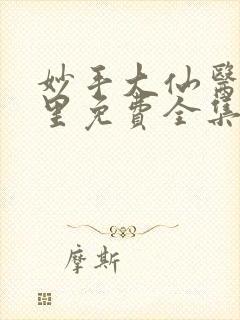 妙手大仙醫
里免費全集
摩斯